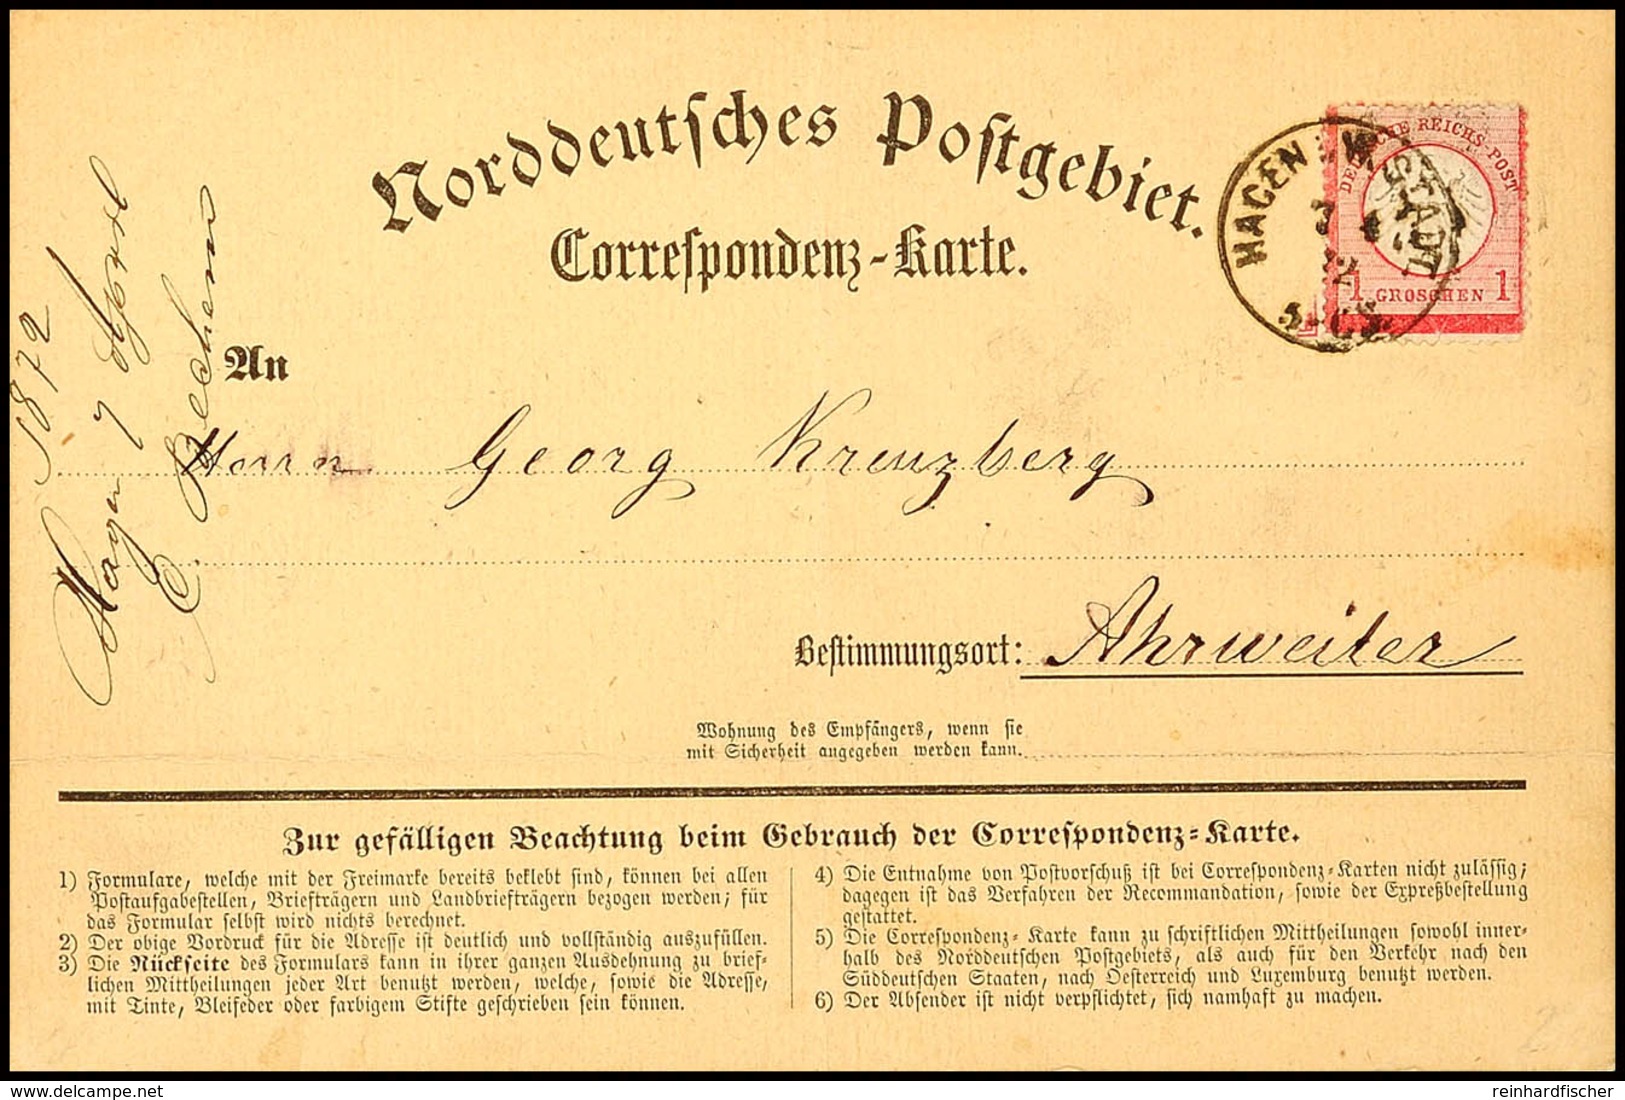 Norddeutsches Postgebiet.
Correspondenz-Karte.
HAGEN i. W. STADT.
7 4
72
5-6 N.
DEUTSCHE REICHS-POST
1 GROSCHEN 1
1872
Hagen 7 April
An
Herrn Georg Kreuzberg
Bestimmungsort: Ahrweiler
Wohnung des Empfängers, wenn sie
mit Sicherheit angegeben werden kann.
Zur gefälligen Beachtung beim Gebrauch der Correspondenz-Karte.
1) Formulare, welche mit der Freimarke bereits beklebt sind, können bei allen
Postaufgabestellen, Briefträgern und Landbriefträgern bezogen werden; für
das Formular selbst wird nichts berechnet.
2) Der obige Vordruck für die Adresse ist deutlich und vollständig auszufüllen.
3) Die Rückseite des Formulars kann in ihrer ganzen Ausdehnung zu brief-
lichen Mittheilungen jeder Art benutzt werden, welche, sowie die Adresse,
mit Tinte, Bleifeder oder farbigem Stifte geschrieben sein können.
4) Die Entnahme von Postvorschuß ist bei Correspondenz-Karten nicht zulässig;
dagegen ist das Verfahren der Recommandation, sowie der Expreßbestellung
gestattet.
5) Die Correspondenz-Karte kann zu schriftlichen Mittheilungen sowohl inner-
halb des Norddeutschen Postgebiets, als auch für den Verkehr nach den
Süddeutschen Staaten, nach Oesterreich und Luxemburg benutzt werden.
6) Der Absender ist nicht verpflichtet, sich namhaft zu machen.
www.delcampe.net
reinhardfischer